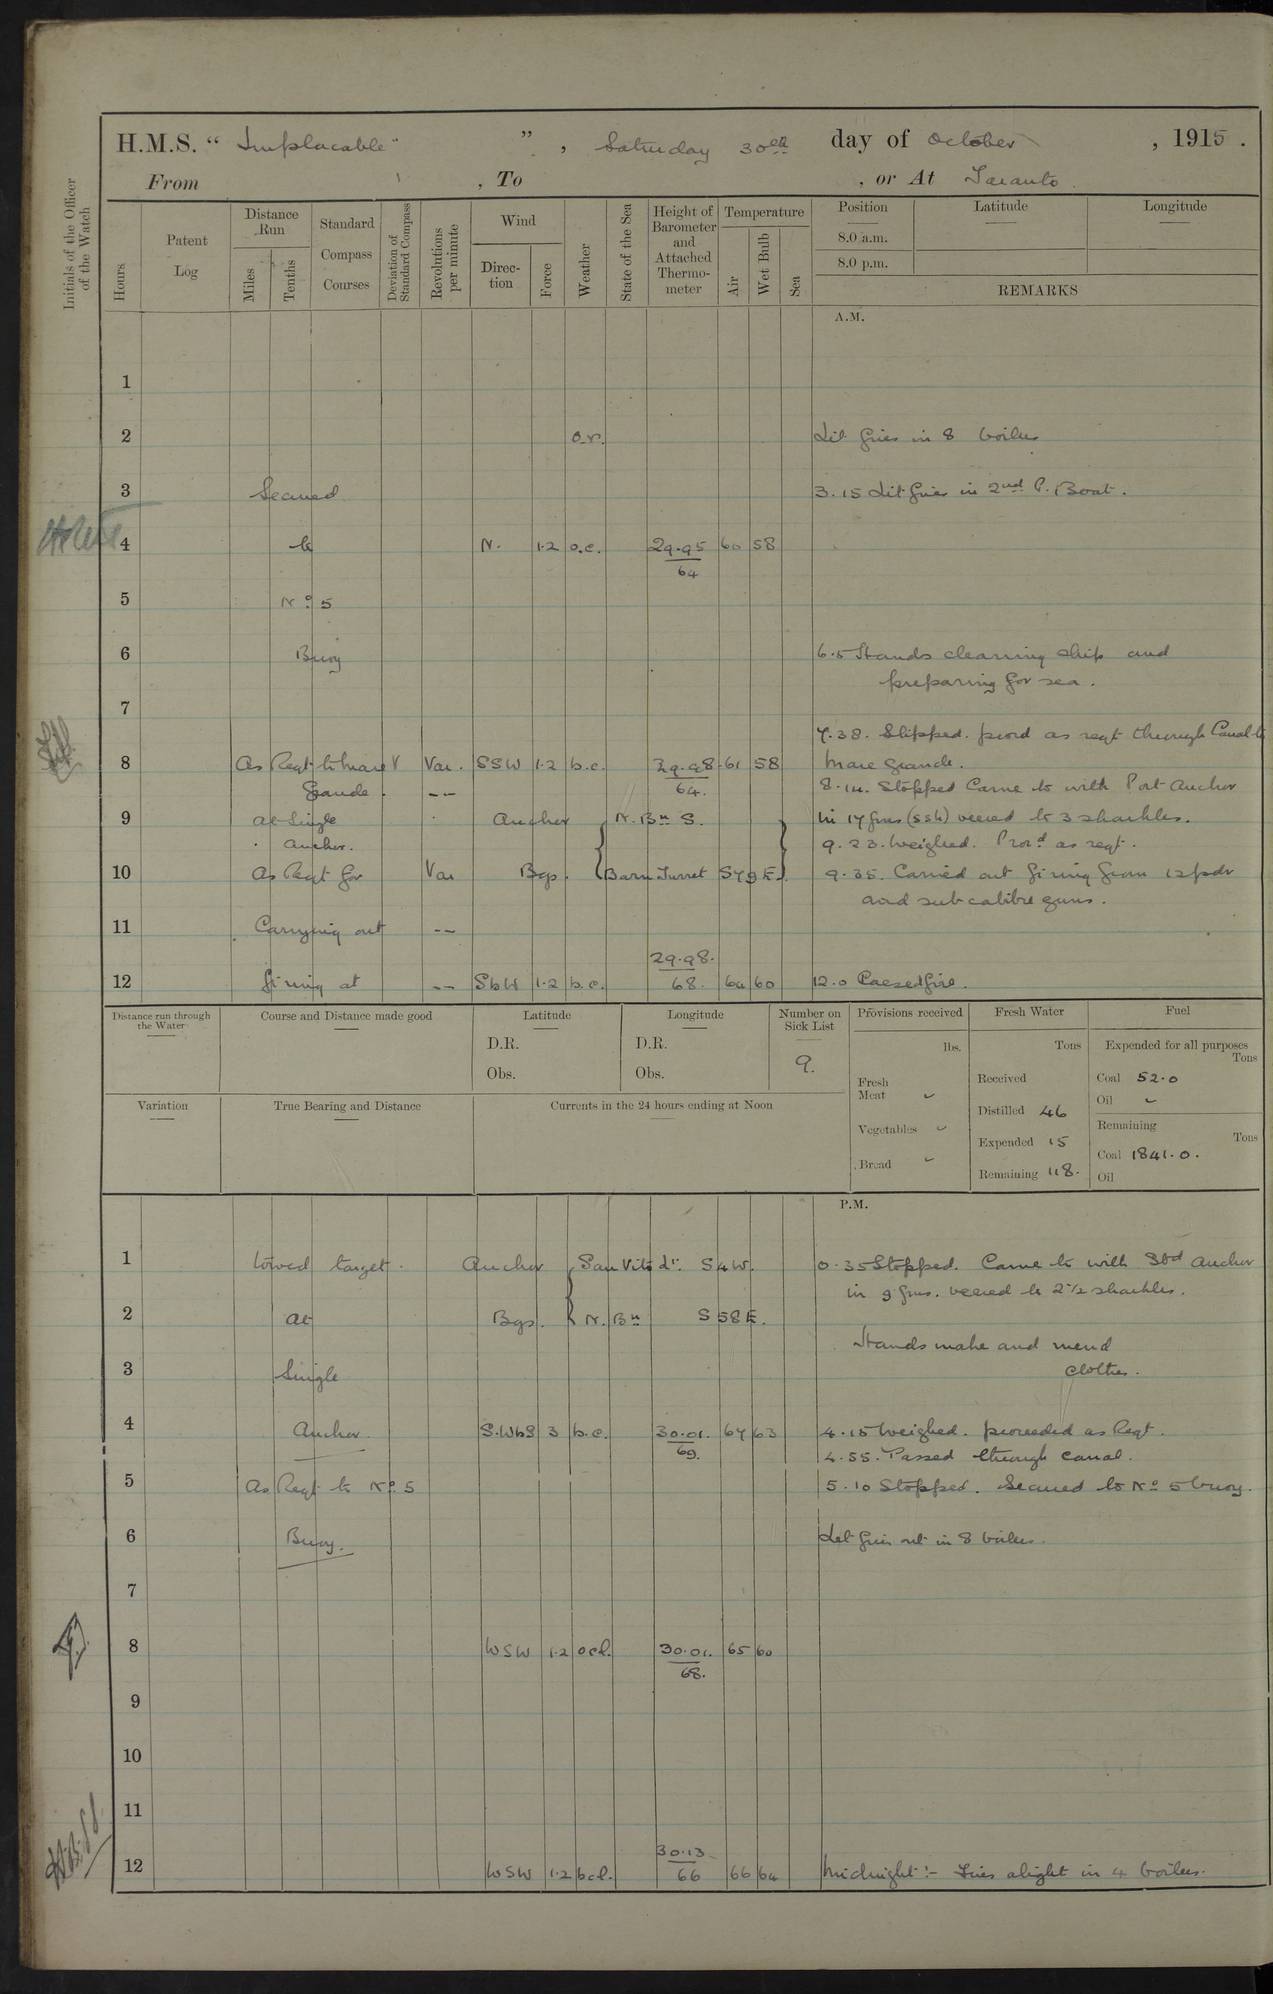 H.M.S. “ Implacable ” , Saturday 30th day of October , 1915 .
From , To , or At Taranto
Initials of the Officer of the Watch
Hours
Patent Log
Distance Run
Miles
Tenths
Standard Compass Courses
Deviation of Standard Compass
Revolutions per minute
Wind
Direction
Force
Weather
State of the Sea
Height of Barometer and Attached Thermometer
Temperature
Air
Wet Bulb
Sea
Position Latitude Longitude
8.0 a.m.
8.0 p.m.
REMARKS
A.M.
1
2 o.r. Lit fires in 8 boilers
3 Secured 3.15 Lit fires in 2nd P. Boat.
4 to N. 1.2 o.c. 29.95 60 58
64
5 No 5
6 Buoy 6.5 Hands cleaning ship and
preparing for sea.
7
7.38. Slipped. procd as reqt through Canal to
8 As Reqt to Mare Var. SSW 1.2 b.c. 29.98 61 58 Mare Grande.
Grande. -- 64. 8.14. Stopped Came to with Port Anchor
9 at Single Anchor N. Bn S. in 17 fms (ssh) veered to 3 shackles.
Anchor. 9.23. Weighed. Procd as reqt.
10 As Reqt for Var Bgs. Barn Turret S79E. 9.35. Carried out firing from 12 pdr
and sub calibre guns.
11 Carrying out --
29.98.
12 firing at -- SbW 1.2 b.c. 68. 64 60 12.0 Ceased fire.
Distance run through the Water
Course and Distance made good
Latitude
D.R.
Obs.
Longitude
D.R.
Obs.
Number on Sick List
9.
Provisions received
lbs.
Fresh Meat
Vegetables
Bread
Fresh Water
Tons
Received
Distilled 46
Expended 15
Remaining 118.
Fuel
Expended for all purposes
Tons
Coal 52.0
Oil
Remaining
Tons
Coal 1841.0.
Oil
Variation
True Bearing and Distance
Currents in the 24 hours ending at Noon
P.M.
1 towed target. Anchor San Vito S4W. 0.35 Stopped. Came to with Stbd Anchor
in 9 fms. veered to 2½ shackles.
2 at Bgs. N. Bn S58E.
Hands make and mend
3 Single clothes.
4 Anchor S.WbS 3 b.c. 30.01. 67 63 4.15 Weighed. proceeded as Reqt.
69. 4.55. Passed through canal.
5 As Reqt to No 5 5.10 Stopped. Secured to No 5 buoy.
6 Buoy. Let fires out in 8 boilers.
7
8 WSW 1.2 ocl. 30.01. 65 60
68.
9
10
11
30.13
12 WSW 1.2 bcl. 66 66 64 Midnight:- Fires alight in 4 boilers.